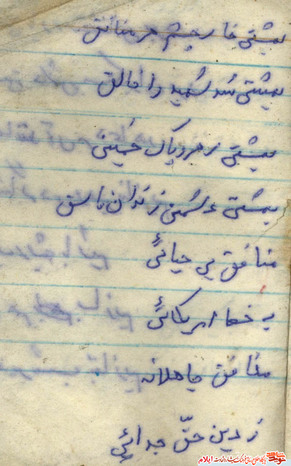 بهشتی خار چشم هر منافق
بهشتی شد شهید راه خالق
بهشتی رهرو پاک حسینی
بهشتی دشمن زندان باسن
منافق بی حیائی
بی خط امریکائی
منافق جاهلانه
ز دین حق جدائی